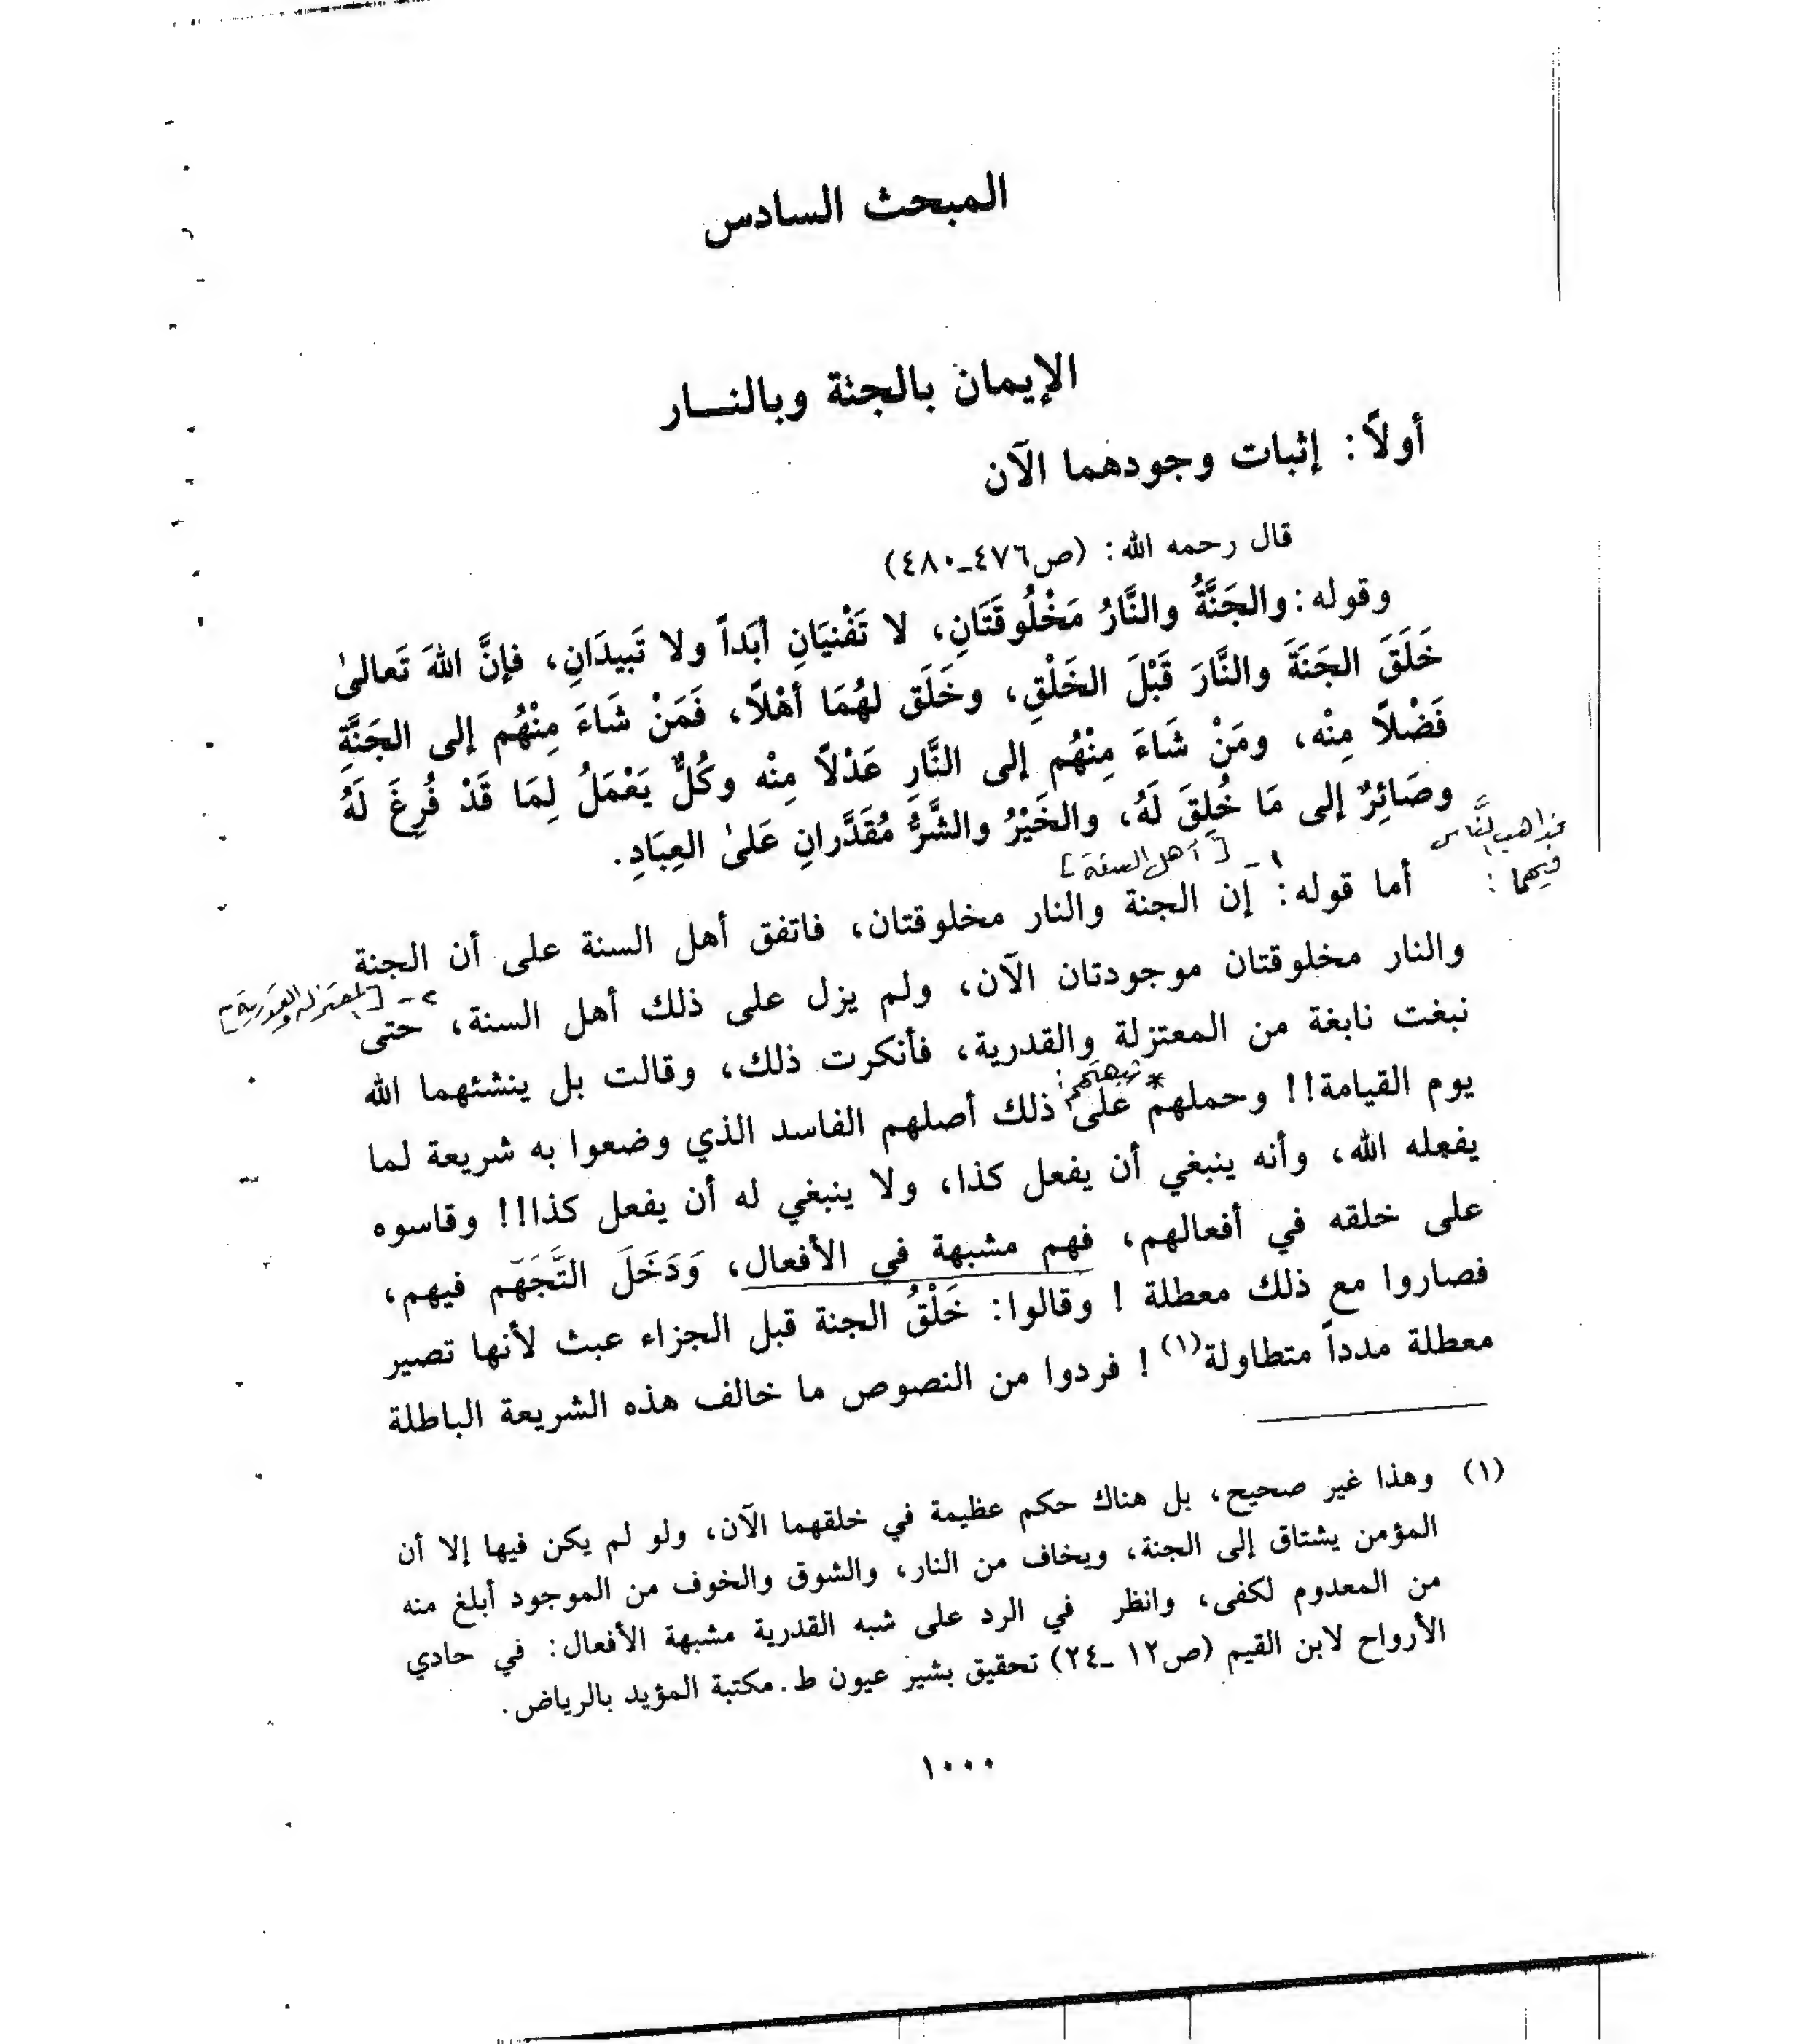 المبحث السادس
الإيمان بالجنة وبالنـــار
أولاً: إثبات وجودهما الآن
قال رحمه الله: (ص٤٧٦ـ٤٨٠)
وقوله: والجَنَّةُ والنَّارُ مَخْلُوقَتَانِ، لا تَفْنيَانِ أبَداً ولا تَبيدَانِ، فإنَّ اللهَ تَعالىٰ
خَلَقَ الجَنَةَ والنَّارَ قَبْلَ الخَلْقِ، وخَلَق لهُمَا أهْلاً، فَمَنْ شَاءَ مِنْهُم إلى الجَنَّةِ
فَضْلاً مِنْه، ومَنْ شَاءَ مِنْهُم إلى النَّارِ عَدْلاً مِنْه وكُلٌّ يَعْمَلُ لِمَا قَدْ فُرِغَ لَهُ
وصَائِرٌ إلى مَا خُلِقَ لَهُ، والخَيْرُ والشَّرُّ مُقَدَّرانِ عَلىٰ العِبَادِ.
مذاهب النَّاس
فيهما :
١ - [أهل السنة]
أما قوله: إن الجنة والنار مخلوقتان، فاتفق أهل السنة على أن الجنة
والنار مخلوقتان موجودتان الآن، ولم يزل على ذلك أهل السنة، حتى
٢ - [المعتزلة والقدرية]
نبغت نابغة من المعتزلة والقدرية، فأنكرت ذلك، وقالت بل ينشئهما الله
* شبهتهم:
يوم القيامة!! وحملهم على ذلك أصلهم الفاسد الذي وضعوا به شريعة لما
يفعله الله، وأنه ينبغي أن يفعل كذا، ولا ينبغي له أن يفعل كذا!! وقاسوه
على خلقه في أفعالهم، فهم مشبهة في الأفعال، وَدَخَلَ التَّجَهّم فيهم،
فصاروا مع ذلك معطلة ! وقالوا: خَلْقُ الجنة قبل الجزاء عبث لأنها تصير
معطلة مدداً متطاولة(١) ! فردوا من النصوص ما خالف هذه الشريعة الباطلة
(١) وهذا غير صحيح، بل هناك حكم عظيمة في خلقهما الآن، ولو لم يكن فيها إلا أن
المؤمن يشتاق إلى الجنة، ويخاف من النار، والشوق والخوف من الموجود أبلغ منه
من المعدوم لكفى، وانظر في الرد على شبه القدرية مشبهة الأفعال: في حادي
الأرواح لابن القيم (ص١٢ ـ٢٤) تحقيق بشير عيون ط. مكتبة المؤيد بالرياض.
١٠٠٠